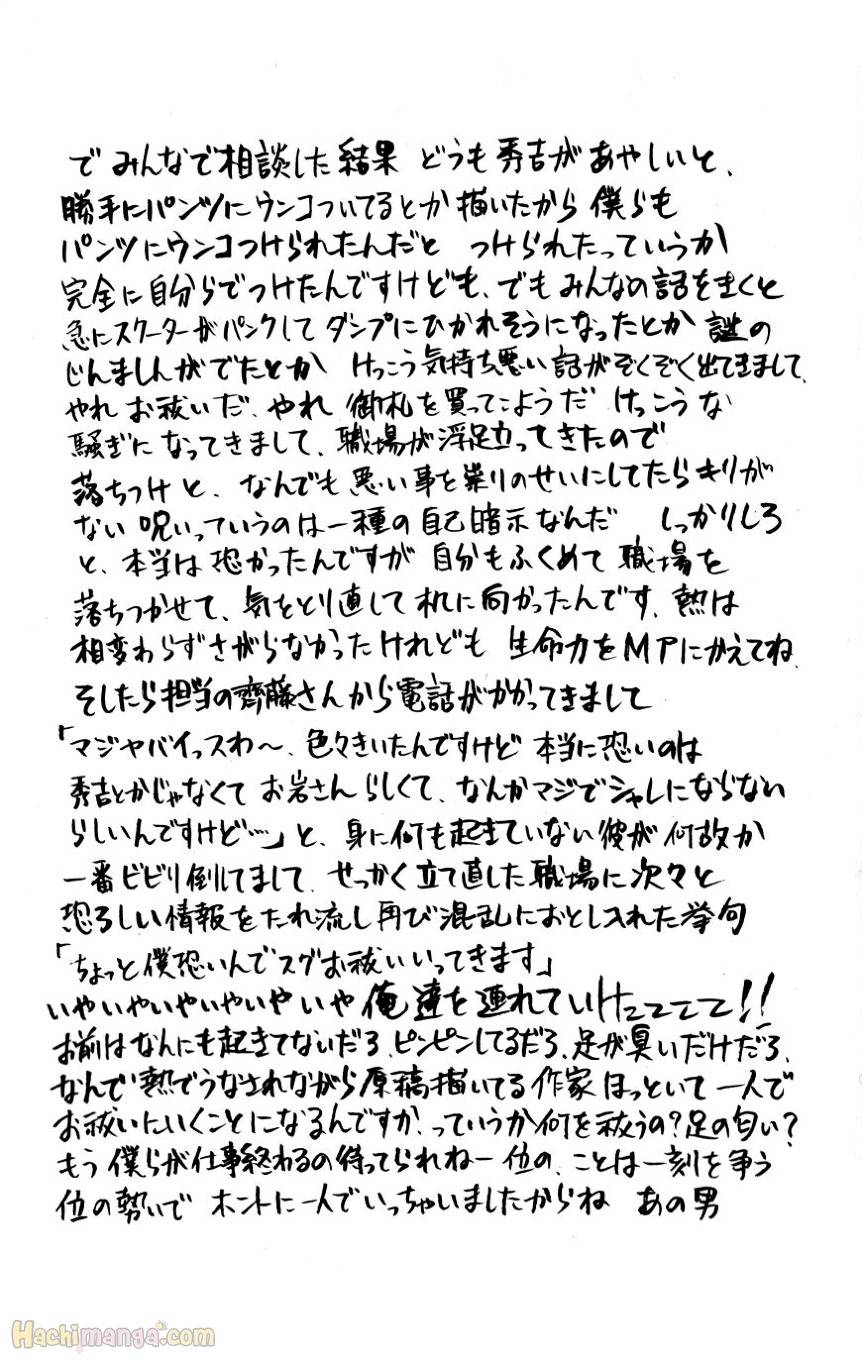 で みんなで相談した結果 どうも秀吉があやしいと、
勝手にパンツにウンコついてるとか描いたから 僕らも
パンツにウンコつけられたんだと つけられたっていうか
完全に自分らでつけたんですけども、でもみんなの話をきくと
急にスクーターがパンクして ダンプにひかれそうになったとか 謎の
じんましんがでたとか けっこう気持ち悪い話がぞくぞく出てきまして、
やれ お祓いだ、やれ 御札を買ってこようだ けっこうな
騒ぎになってきまして、職場が浮足立ってきたので
落ちつけと、なんでも悪い事を祟りのせいにしてたらきりが
ない 呪いっていうのは一種の自己暗示なんだ しっかりしろ
と、本当は恐かったんですが 自分もふくめて 職場を
落ちつかせて、気をとり直して机に向かったんです、熱は
相変わらずさがらなかったけれども 生命力をMPにかえてね、
そしたら担当の齊藤さんから電話がかかってきまして
「マジヤバイっスわ〜、色々きいたんですけど 本当に恐いのは
秀吉とかじゃなくて お岩さんらしくて、なんかマジでシャレにならない
らしいんですけど…」と、身に何も起きていない彼が何故か
一番ビビり倒してまして、せっかく立て直した職場に次々と
恐ろしい情報をたれ流し再び混乱におとし入れた挙句
「ちょっと僕恐いんでスグお祓いいってきます」
いやいやいやいやいやいや 俺達を連れていけェェェェ!!
お前はなんにも起きてないだろ、ピンピンしてるだろ、足が臭いだけだろ、
なんで熱でうなされながら原稿描いてる作家ほっといて一人で
お祓いにいくことになるんですか、っていうか何を祓うの?足の匂い?
もう僕らが仕事終わるの待ってられねー位の、ことは一刻を争う
位の勢いで ホントに一人でいっちゃいましたからね あの男
Hachimanga.com